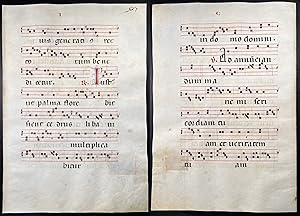 ius generati o rec
to rum bene
dicetur. V. Iust
us palma flore bit
sicut ce drus liba ni
multiplica
bitur
in do mo domini
V. Ad annuncian
dum ma
ne mi seri
cordiam tu
am et veritatem
tu am